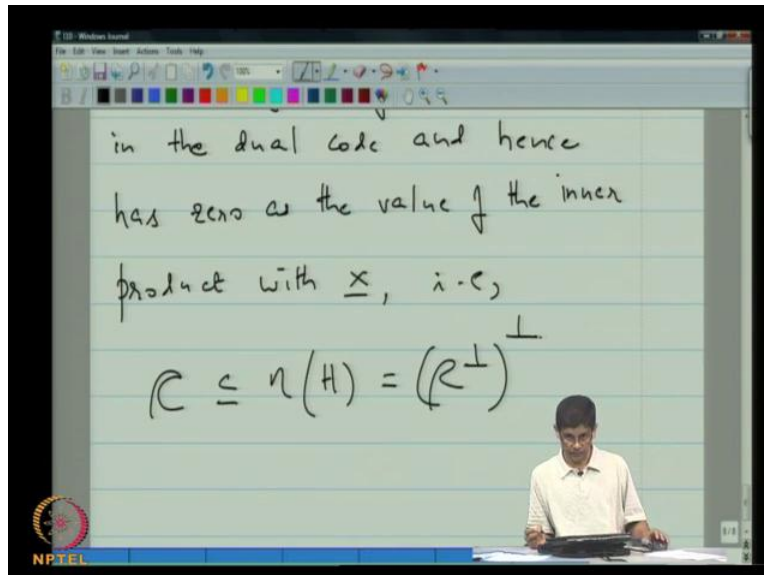 L10 - Windows Journal
File Edit View Insert Actions Tools Help
100%
B I
in the dual code and hence
has zero as the value of the inner
product with x, i.e,
C ⊆ η(H) = (C^⊥)^⊥
8/8
NPTEL